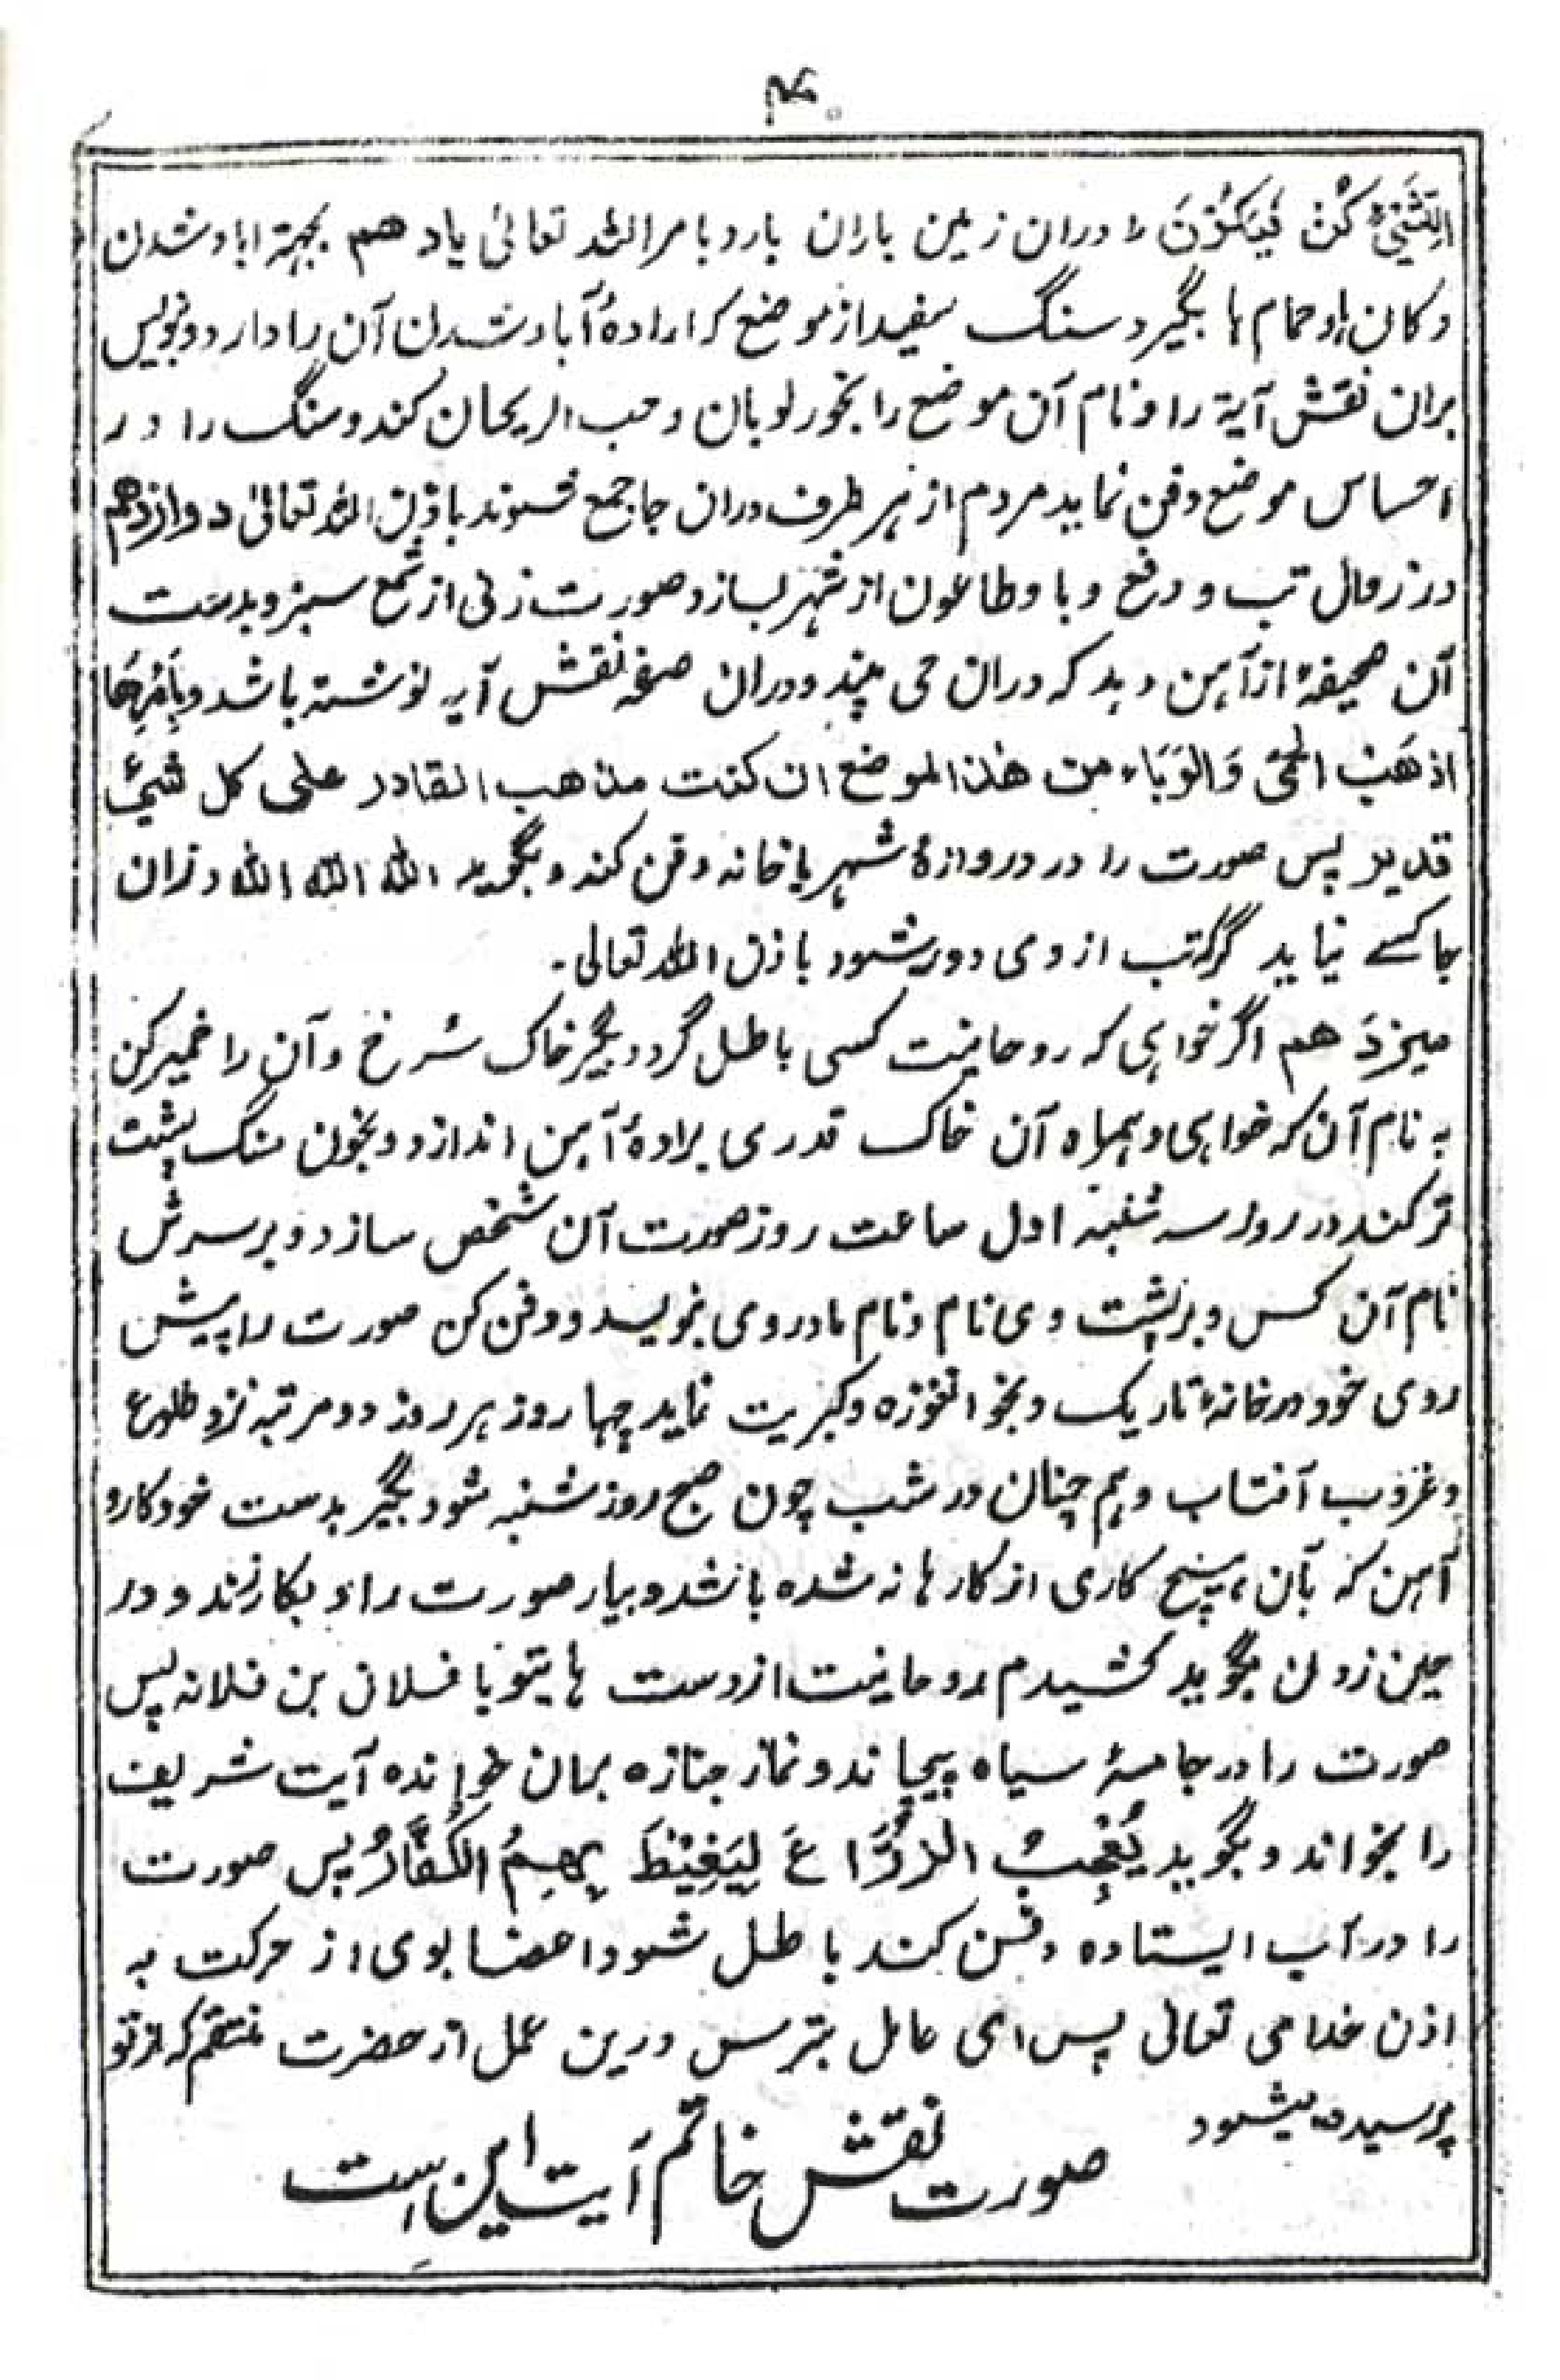 لِلشَّیْءِ کُنْ فَیَکُوْنَ ؕ دران زمین باران بارد بامرالله تعالیٰ یازدهم بجهة اباد شدن
دکان ها و حمام ها بگیرد سنگ سفید از موضع که ارادهٔ آباد شدن آن را دارد و بنویس
بران نقش آیة را و نام آن موضع را بخور لوبان و حب الریحان کند و سنگ را در
احساس موضع دفن نماید مردم از هر طرف دران جا جمع شوند باذن الله تعالیٰ دوازدهم
در زوال تب و دفع وبا و طاعون از شهر بسازد صورت زنی از شمع سبز و بدست
آن صحیفهٔ از آهن دهد که دران می بیند و دران صفحه نقش آیه نوشته باشد
اذهب الحمی وَالوَبَاء من هذا الموضع ان کنت مذهب القادر علی کل شیئ
قدیر پس صورت را در دروازهٔ شهر یا خانه دفن کند و بگوید الله الله الله الله وزان
جا کسے نیاید گر تب از وی دور شود باذن الله تعالی۔
سیزدهم اگر خواهی که روحانیت کسی باطل گردد بگیر خاک سُرخ و آن را خمیر کن
به نام آن که خواهی و همراه آن خاک قدری برادهٔ آهن اندازد و بخون سنگ پشت
تر کند در روز سه شنبه اول ساعت روز صورت آن شخص سازد و بر سرش
نام آن کس و بر پشت وی نام و نام مادر وی بنویسد و دفن کن صورت را پیش
روی خود در خانهٔ تاریک و بخور انغوزه و کبریت نماید چهار روز هر روز دو مرتبه نزد طلوع
و غروب آفتاب و هم چنان در شب چون صبح روز شنبه شود بگیر بدست خود کارد
آهن که بآن هیچ کاری از کارها نه شده باشد و بیار صورت را و بکار زند و در
حین زدن بگوید کشیدم روحانیت از دست هایتو یا فلان بن فلانه پس
صورت را در جامهٔ سیاه پیچاند و نماز جنازه بران خوانده آیت شریف
را بخواند و بگوید یُعْجِبُ الزُّرَّاعَ لِیَغِیْظَ بِهِمُ الْکُفَّارُ پس صورت
را در آب ایستاده دفن کند باطل شود اعضا بوی از حرکت به
اذن خدامی تعالی پس ای عامل بترس درین عمل از حضرت منتقم که از تو
پرسیده میشود
صورت نقش خاتم آیت این است